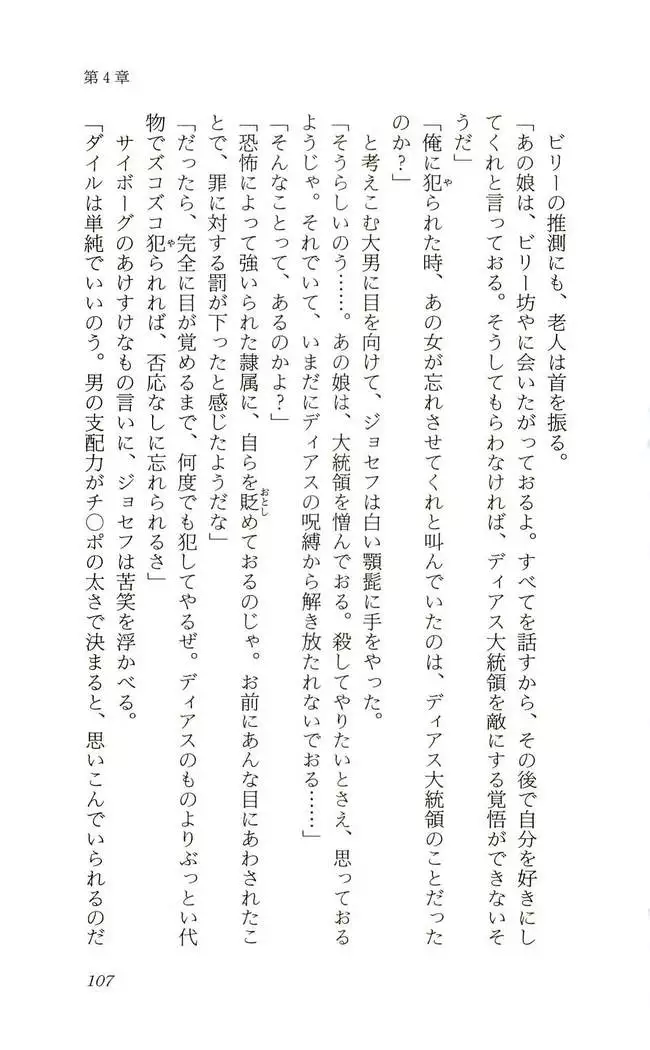 第4章
ビリーの推測にも、老人は首を振る。
「あの娘は、ビリー坊やに会いたがっておるよ。すべてを話すから、その後で自分を好きにし
てくれと言っておる。そうしてもらわなければ、ディアス大統領を敵にする覚悟ができないそ
うだ」
「俺に犯られた時、あの女が忘れさせてくれと叫んでいたのは、ディアス大統領のことだった
のか？」
と考えこむ大男に目を向けて、ジョセフは白い顎髭に手をやった。
「そうらしいのう……。あの娘は、大統領を憎んでおる。殺してやりたいとさえ、思っておる
ようじゃ。それでいて、いまだにディアスの呪縛から解き放たれないでおる……」
「そんなことって、あるのかよ？」
「恐怖によって強いられた隷属に、自らを貶めておるのじゃ。お前にあんな目にあわされたこ
とで、罪に対する罰が下ったと感じたようだな」
「だったら、完全に目が覚めるまで、何度でも犯してやるぜ。ディアスのものよりぶっとい代
物でズコズコ犯られれば、否応なしに忘れられるさ」
サイボーグのあけすけなもの言いに、ジョセフは苦笑を浮かべる。
「ダイルは単純でいいのう。男の支配力がチ〇ポの太さで決まると、思いこんでいられるのだ
や
や
おとし
107